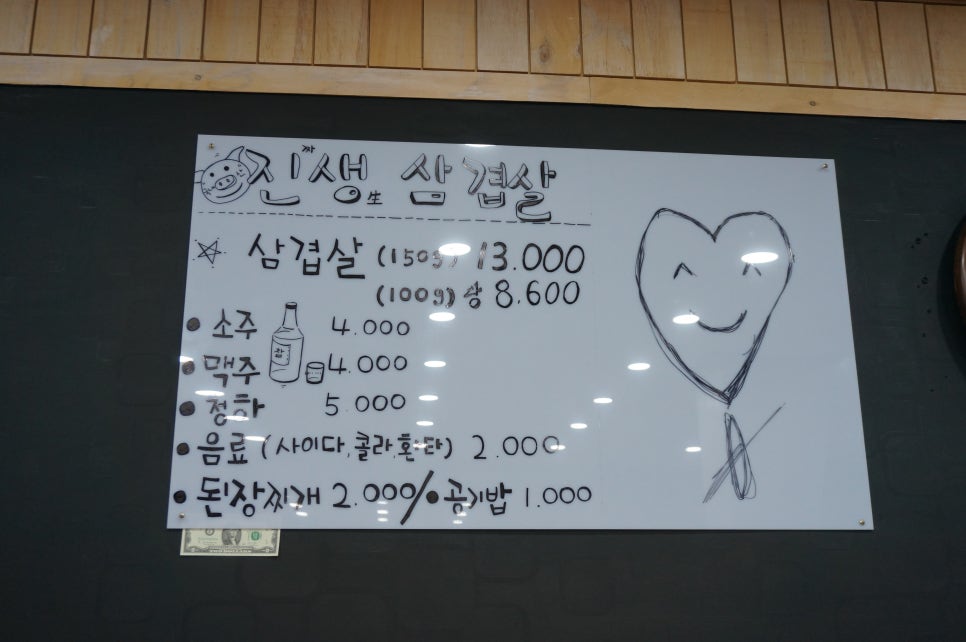 진짜생生 삼겹살
삼겹살 (150g) 13.000
(100g) 당 8.600
• 소주 4.000
• 맥주 4.000
• 청하 5.000
• 음료 (사이다,콜라,환타) 2.000
• 된장찌개 2.000/• 공기밥 1.000